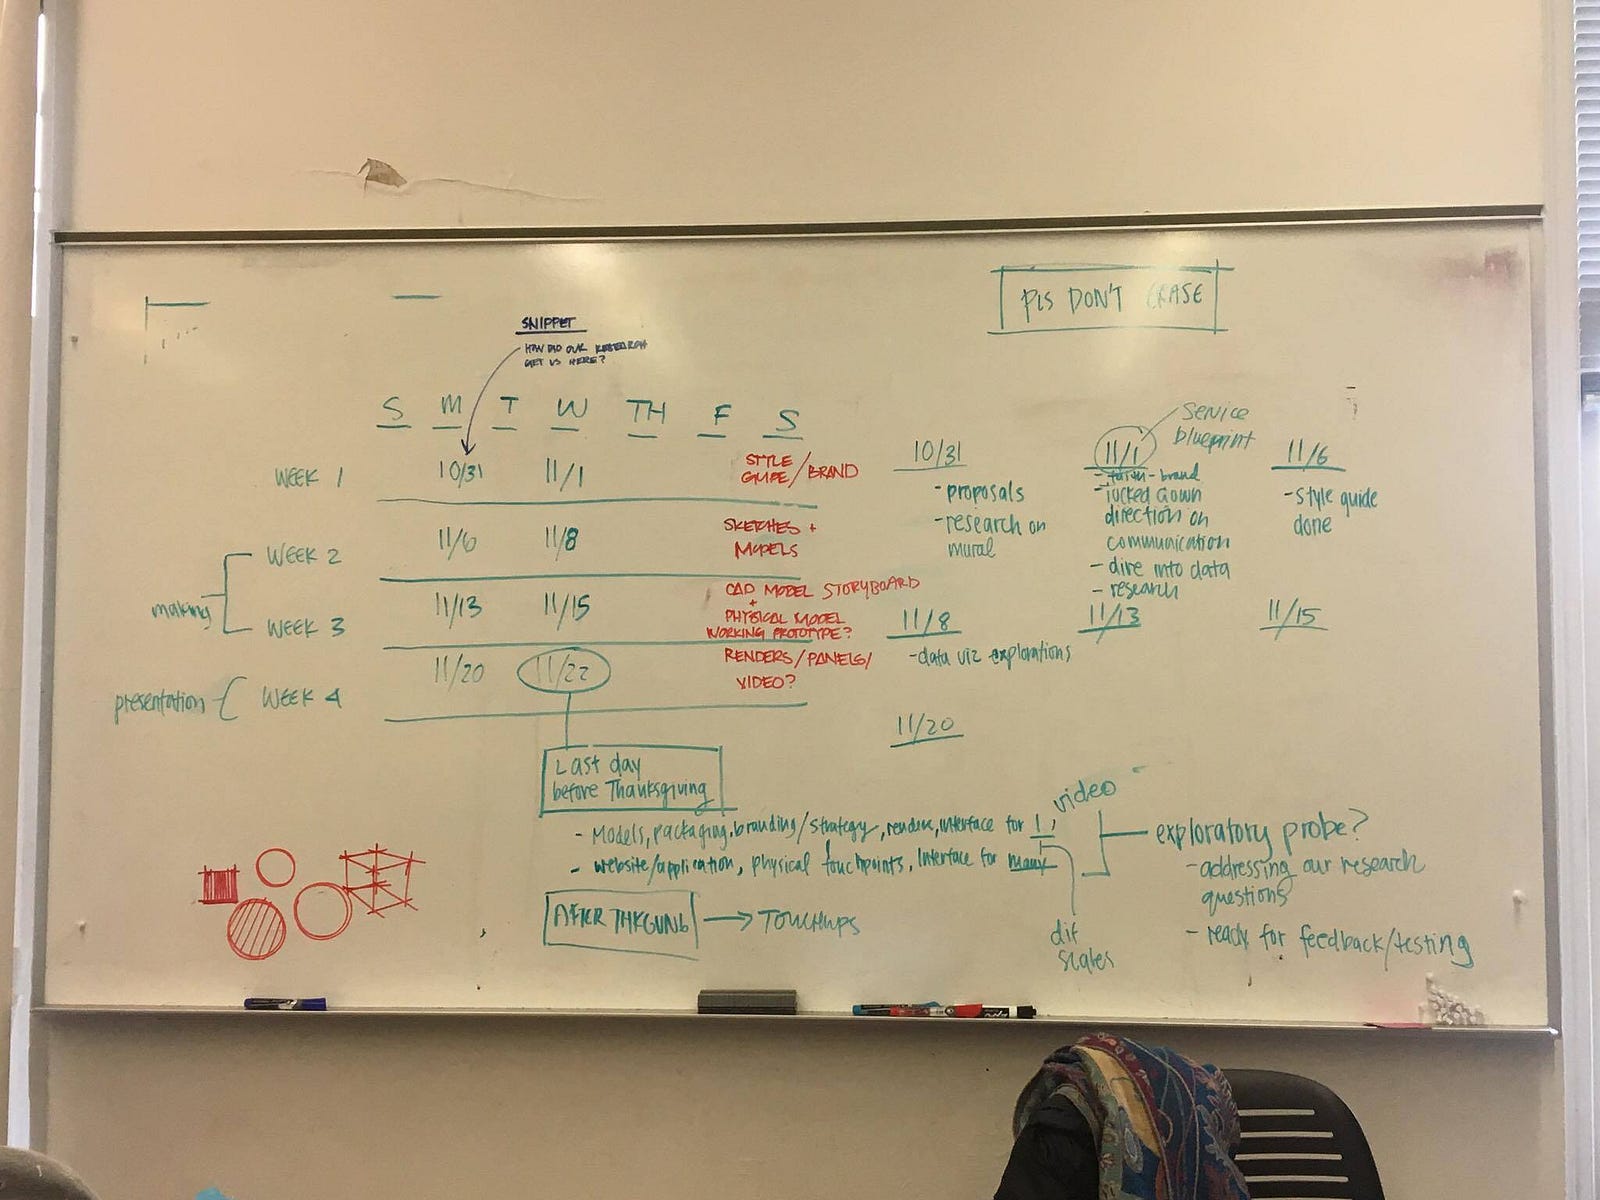 PLS DON'T ERASE
SNIPPET
HOW DID OUR RESEARCH
GET US HERE?
S M T W TH F S
WEEK 1 10/31 11/1 STYLE
GUIDE/BRAND
WEEK 2 11/6 11/8 SKETCHES +
MODELS
making
WEEK 3 11/13 11/15 CAD MODEL STORYBOARD
+
PHYSICAL MODEL
WORKING PROTOTYPE?
presentation WEEK 4 11/20 11/22 RENDERS/PANELS/
VIDEO?
Last day
before Thanksgiving
10/31
- proposals
- research on
mural
Service
blueprint
11/1
- brand
- locked down
direction on
communication
- dive into data
- research
11/6
- style guide
done
11/8
- data viz explorations
11/13
11/15
11/20
- Models, packaging, branding/strategy, render, interface for 1, video
- website/application, physical touchpoints, interface for many
dif
scales
exploratory probe?
- addressing our research
questions
- ready for feedback/testing
AFTER THKGVNG → TOUCHUPS